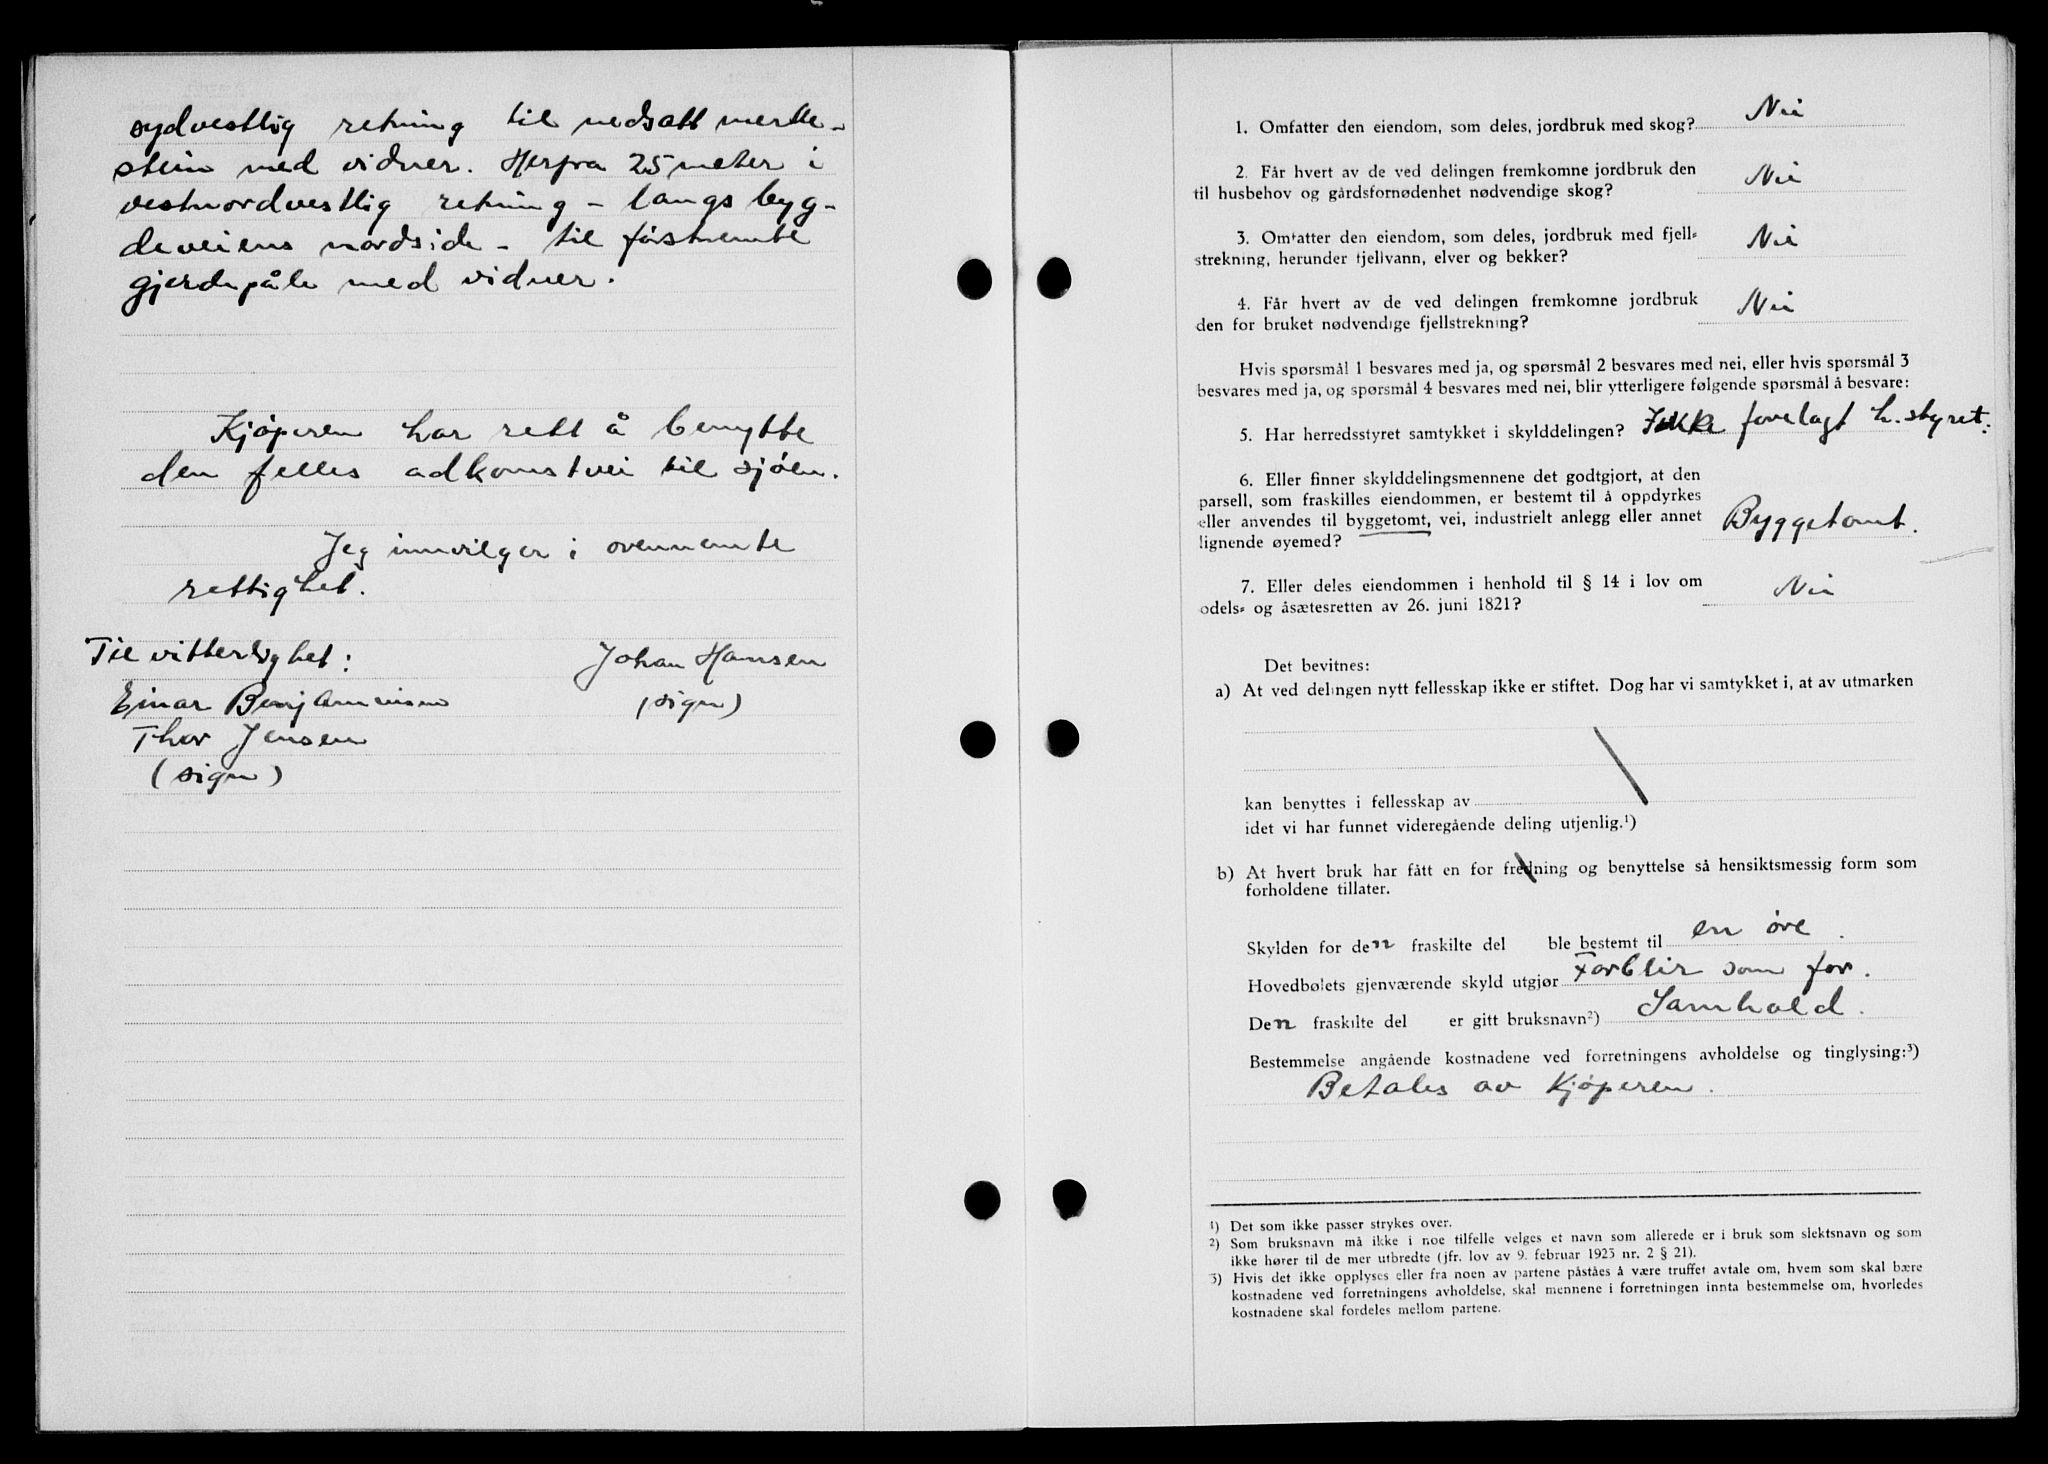 sydvestlig retning til nedsatt merke-
stein med vidner. Herfra 25 meter i
vestnordvestlig retning - langs byg-
deveiens nordside - til førstnemte
gjerdepåle med vidner.
Kjøperen har rett å benytte
den felles adkomstvei til sjøen.
Jeg innvilger i ovennemte
rettighet.
Til vitterlighet:
Johan Hansen
Einar Benjaminsen
(sign)
Thor Jensen
(sign)
1. Omfatter den eiendom, som deles, jordbruk med skog? Nei
2. Får hvert av de ved delingen fremkomne jordbruk den
til husbehov og gårdsfornødenhet nødvendige skog? Nei
3. Omfatter den eiendom, som deles, jordbruk med fjell-
strekning, herunder fjellvann, elver og bekker? Nei
4. Får hvert av de ved delingen fremkomne jordbruk
den for bruket nødvendige fjellstrekning? Nei
Hvis spørsmål 1 besvares med ja, og spørsmål 2 besvares med nei, eller hvis spørsmål 3
besvares med ja, og spørsmål 4 besvares med nei, blir ytterligere følgende spørsmål å besvare:
5. Har herredsstyret samtykket i skylddelingen? Ikke forelagt h.styret.
6. Eller finner skylddelingsmennene det godtgjort, at den
parsell, som fraskilles eiendommen, er bestemt til å oppdyrkes
eller anvendes til byggetomt, vei, industrielt anlegg eller annet
lignende øyemed? Byggetomt.
7. Eller deles eiendommen i henhold til § 14 i lov om
odels- og åsætesretten av 26. juni 1821? Nei
Det bevitnes:
a) At ved delingen nytt fellesskap ikke er stiftet. Dog har vi samtykket i, at av utmarken
kan benyttes i fellesskap av
idet vi har funnet videregående deling utjenlig.¹)
b) At hvert bruk har fått en for fredning og benyttelse så hensiktsmessig form som
forholdene tillater.
Skylden for den fraskilte del ble bestemt til en øre.
Hovedbølets gjenværende skyld utgjør Forblir som før.
Den fraskilte del er gitt bruksnavn²) Samhold.
Bestemmelse angående kostnadene ved forretningens avholdelse og tinglysing:³)
Betales av Kjøperen.
¹) Det som ikke passer strykes over.
²) Som bruksnavn må ikke i noe tilfelle velges et navn som allerede er i bruk som slektsnavn og som
ikke hører til de mer utbredte (jfr. lov av 9. februar 1923 nr. 2 § 21).
³) Hvis det ikke opplyses eller fra noen av partene påståes å være truffet avtale om, hvem som skal bære
kostnadene ved forretningens avholdelse, skal mennene i forretningen innta bestemmelse om, hvorledes
kostnadene skal fordeles mellom partene.